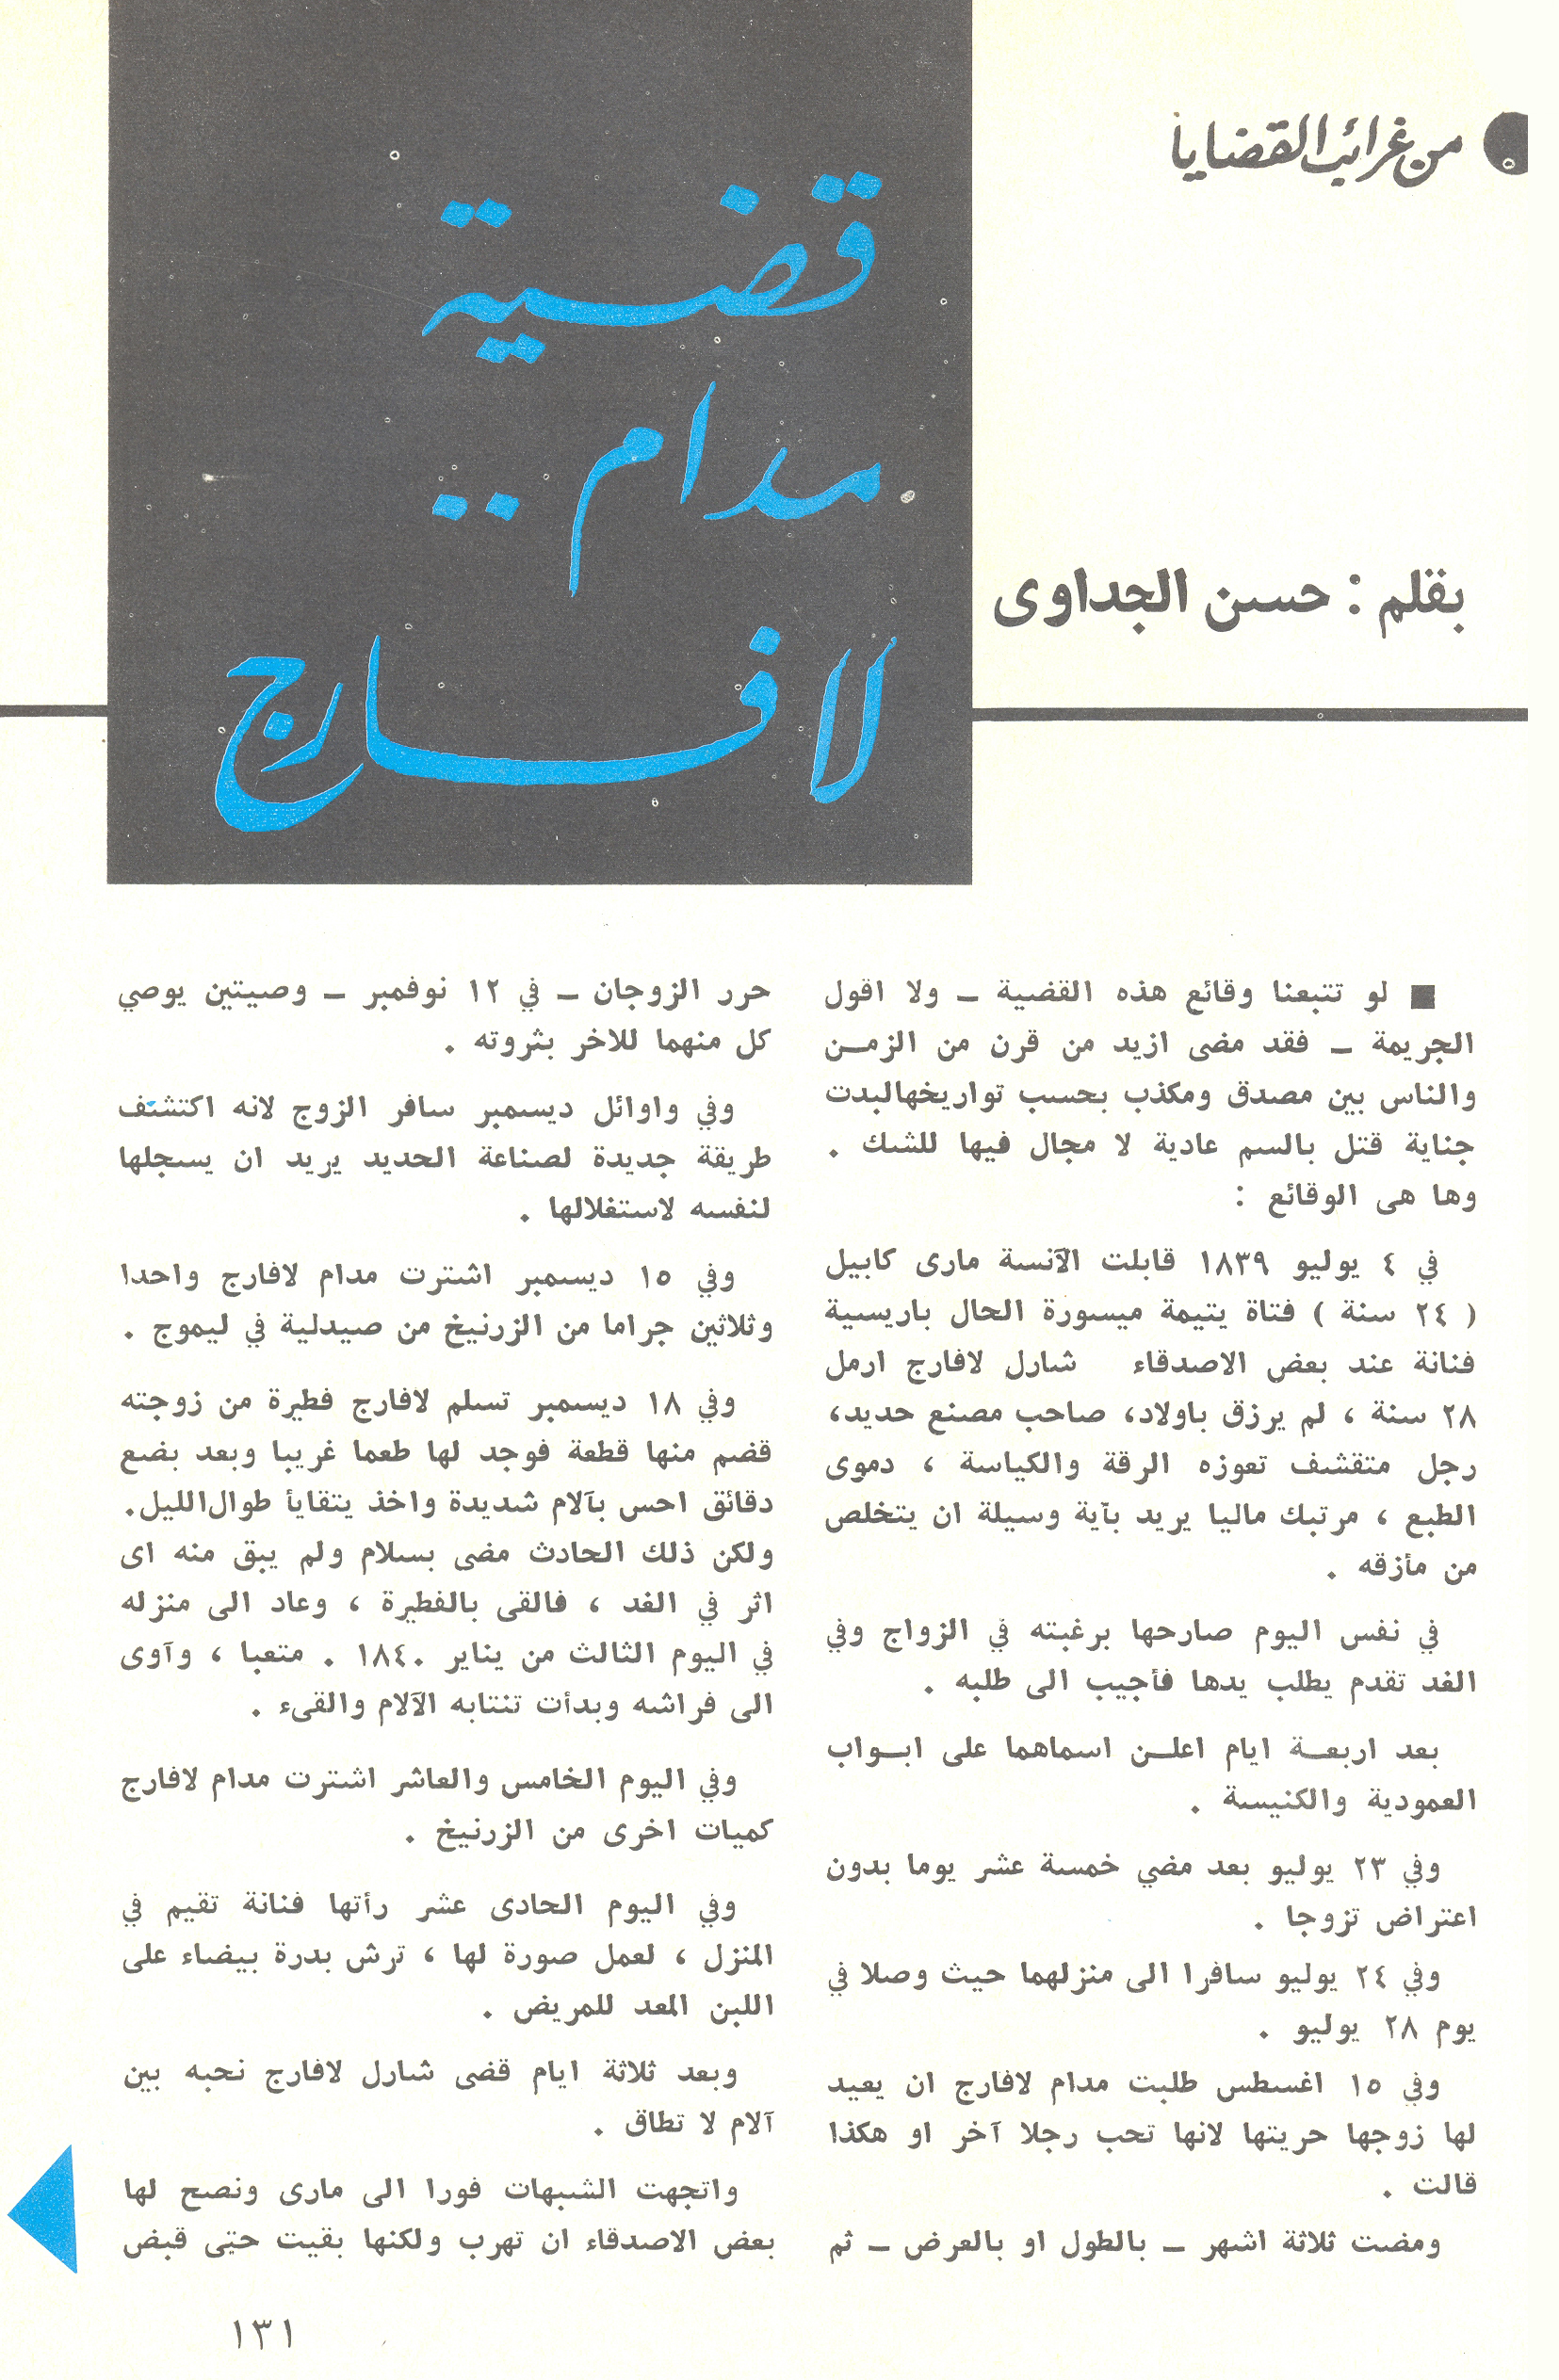 من غرائب القضايا
قضية
مدام ..
لا فارج
بقلم : حسن الجداوى
■ لو تتبعنا وقائع هذه القضية ــ ولا اقول
الجريمة ــ فقد مضى ازيد من قرن من الزمـن
والناس بين مصدق ومكذب بحسب تواريخهالبدت
جناية قتل بالسم عادية لا مجال فيها للشك .
وها هى الوقائع :
في ٤ يوليو ١٨٣٩ قابلت الآنسة مارى كابيل
( ٢٤ سنة ) فتاة يتيمة ميسورة الحال باريسية
فنانة عند بعض الاصدقاء شارل لافارج ارمل
٢٨ سنة ، لم يرزق باولاد، صاحب مصنع حديد،
رجل متقشف تعوزه الرقة والكياسة ، دموى
الطبع ، مرتبك ماليا يريد بآية وسيلة ان يتخلص
من مأزقه .
في نفس اليوم صارحها برغبته في الزواج وفي
الغد تقدم يطلب يدها فأجيب الى طلبه .
بعد اربعـة ايام اعلـن اسماهما على ابـواب
العمودية والكنيسة .
وفي ٢٣ يوليو بعد مضي خمسة عشر يوما بدون
اعتراض تزوجا .
وفي ٢٤ يوليو سافرا الى منزلهما حيث وصلا في
يوم ٢٨ يوليو .
وفي ١٥ اغسطس طلبت مدام لافارج ان يعيد
لها زوجها حريتها لانها تحب رجلا آخر او هكذا
قالت .
ومضت ثلاثة اشهر ــ بالطول او بالعرض ــ ثم
حرر الزوجان ــ في ١٢ نوفمبر ــ وصيتين يوصي
كل منهما للاخر بثروته .
وفي واوائل ديسمبر سافر الزوج لانه اكتشف
طريقة جديدة لصناعة الحديد يريد ان يسجلها
لنفسه لاستغلالها .
وفي ١٥ ديسمبر اشترت مدام لافارج واحدا
وثلاثين جراما من الزرنيخ من صيدلية في ليموج .
وفي ١٨ ديسمبر تسلم لافارج فطيرة من زوجته
قضم منها قطعة فوجد لها طعما غريبا وبعد بضع
دقائق احس بآلام شديدة واخذ يتقايأ طوال الليل.
ولكن ذلك الحادث مضى بسلام ولم يبق منه اى
اثر في الغد ، فالقى بالفطيرة ، وعاد الى منزله
في اليوم الثالث من يناير ١٨٤٠ . متعبا ، وآوى
الى فراشه وبدأت تنتابه الآلام والقىء .
وفي اليوم الخامس والعاشر اشترت مدام لافارج
كميات اخرى من الزرنيخ .
وفي اليوم الحادى عشر رأتها فنانة تقيم في
المنزل ، لعمل صورة لها ، ترش بدرة بيضاء على
اللبن المعد للمريض .
وبعد ثلاثة ايام قضى شارل لافارج نحبه بين
آلام لا تطاق .
واتجهت الشبهات فورا الى مارى ونصح لها
بعض الاصدقاء ان تهرب ولكنها بقيت حتى قبض
١٣١